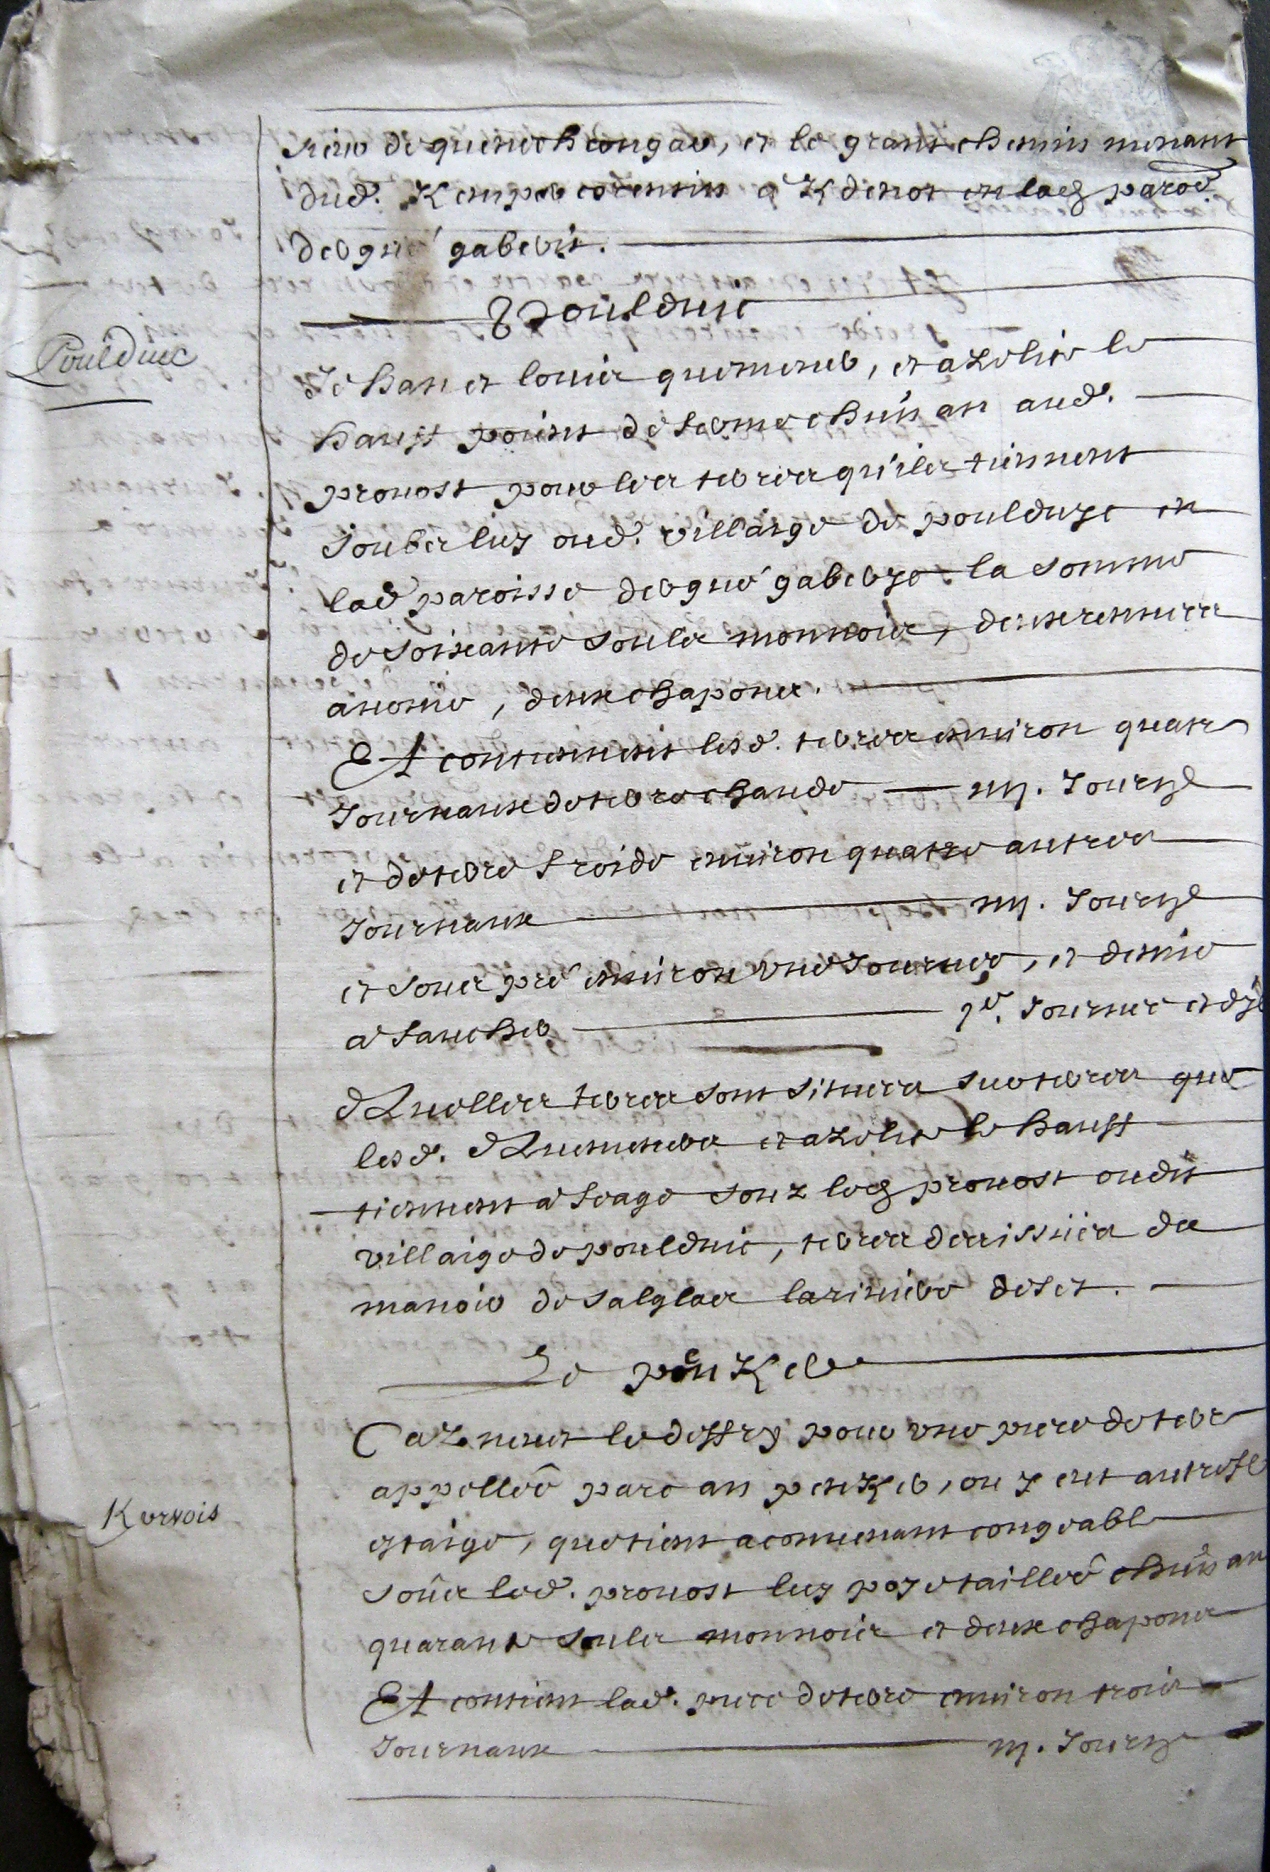 et le grant chemin menant
dud. Kemper corentin a Kdenot en lad paroe.
derguegaberic.
Poulduic
Poulduic
Jehan et Louis quemener, et azelice le
hauff doivent de ferme chun an aud.
provost pour les terres quilz tiennent
soubz luy oud. villaige de poulduye en
lad paroisse derguegaberye la somme
de soixante soulz monnoie, deux rennees
avoine, deux chapons.
Et contiennent lesd. terres environ quatre
Journaux de terre chaude iiij. Journ
et de terre froide environ quatre autres
Journaux iiij. Journ
et soubz pre environ une Journee, et demie
a faucher Journee et
Quelles terres sont situees terres que
lesd. Quemener et azelice le hauff
tiennent a feage soubz led provost oudit
villaige de poulduic, terres
manoir de Salglas la riviere de Jet.
Le penKer
le deffry pour une piece de terre
appellee parc an penKer, ou y eut autreff
estaige, que tient a convenant congeable
soubz led. provost luy poye tailler chun an
quarante soulz monnoie et deux chapons
Kervois
Et contient lad. piece de terre environ trois
Journaux iij. Journ